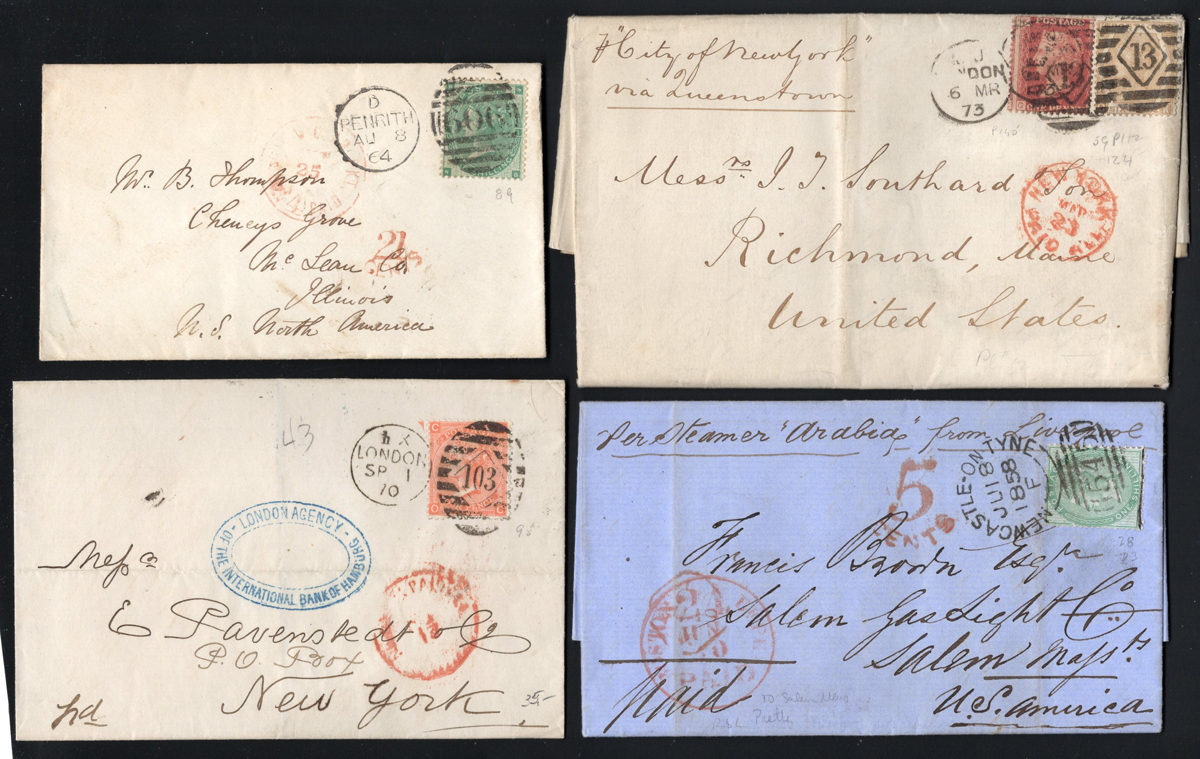 D
PENRITH
AU 8
64
606
25
Mr. B. Thompson
Cheneys Grove
Mc Lean Co
Illinois
U.S. North America
21
89
"City of New York"
via Queenstown
LONDON
6 MR
73
POSTAGE
13
Messrs. I. J. Southard Son
Richmond, Maine
United States.
NEW YORK
23
124
43
X
LONDON
SP 1
70
103
C
LONDON AGENCY
OF THE INTERNATIONAL BANK OF HAMBURG
Messrs
E Pavenstedt & Co
P.O. Box
New York
pd
35-
Per Steamer "Arabia" from Liverpool
5
CENTS
NEWCASTLE-ON-TYNE
JU 18
1858
F
Frances Brown Esqr.
Salem Gas Light Co:
Salem Massts
U.S. America
Paid
To Salem Mass
28